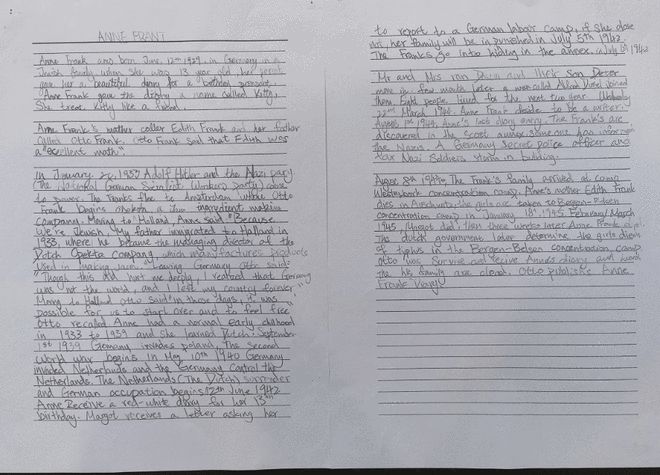 ANNE FRANT
Anne Frank was born June 12th 1929 in Germany in a
Jewish family when She was 13 year old, her parents
gave her a beautiful diary for a birthday present.
Anne Frank gave the diary a name called Kitty,
She treat Kitty like a friend.
Anne Frank's mother caller Edith Frank and her father
called Otto Frank. Otto Frank said that Edith was
a "excellent moth"
In January 30, 1933 Adolf Hitler and the Nazi party
(The National German Socialist Workers party) came
to power. The Franks flee to Amsterdam where Otto
Frank begins a Jam ingredient making
Company, Moving to Holland, Anne said "Because
We're Jewish, My father immigrated to Holland in
1933, where he became the managing director of the
Dutch Opekta Company, which manufactures products
used in making jam." Leaving Germany Otto said
"Though this did hurt me deeply I realized that Germany
was not the world, and I left my country forever"
Moving to Holland Otto said "In those days, it was
possible for us to start over and to feel free
Otto recalled Anne had a normal early chilhood
in 1933 to 1939 and she learned Dutch. September
1st 1939 Germany invades poland, The second
world war begins in May 10th 1940 Germany
invaded Netherlands and the Germany Control the
Netherlands. The Netherlands (The Dutch) surrender
and German occupation begins 12th June 1942
Anne Receive a red-white diary for her 13th
birthday. Margot receives a letter asking her
to report to a German labour camp, if She dose
not, her family will be in punished in July 5th 1942
The Franks go into hiding in the annex. in July 6th 1942
Mr and Mrs van Daan and their Son Peter
move in few month later a man called Albert Dussel joined
them. Eight people lived for the next two year
22nd March 1944 Anne Frank decide to be a writer.
August 1st 1944, Anne's last diary entry. The Frank's are
discovered in the secret annex some one has
the Nazis. A Germany Secret police officer and
four Nazi Soldiers storm in building.
August 8th 1944 The Frank's family arrived at camp
Westerbork concentration camp, Anne's mother Edith Frank
dies in Auschwitz, the girls are taken to Bergen-Belsen
concentration camp in January 18th 1945 February/March
1945, Margot died, then three weeks later Anne Frank died.
The dutch government later determine the girls died
of typhus in the Bergen-Belsen concentration camp
Otto was Survive and receive Anne's diary and
the his family are dead. Otto publishe Anne
Frank Diary